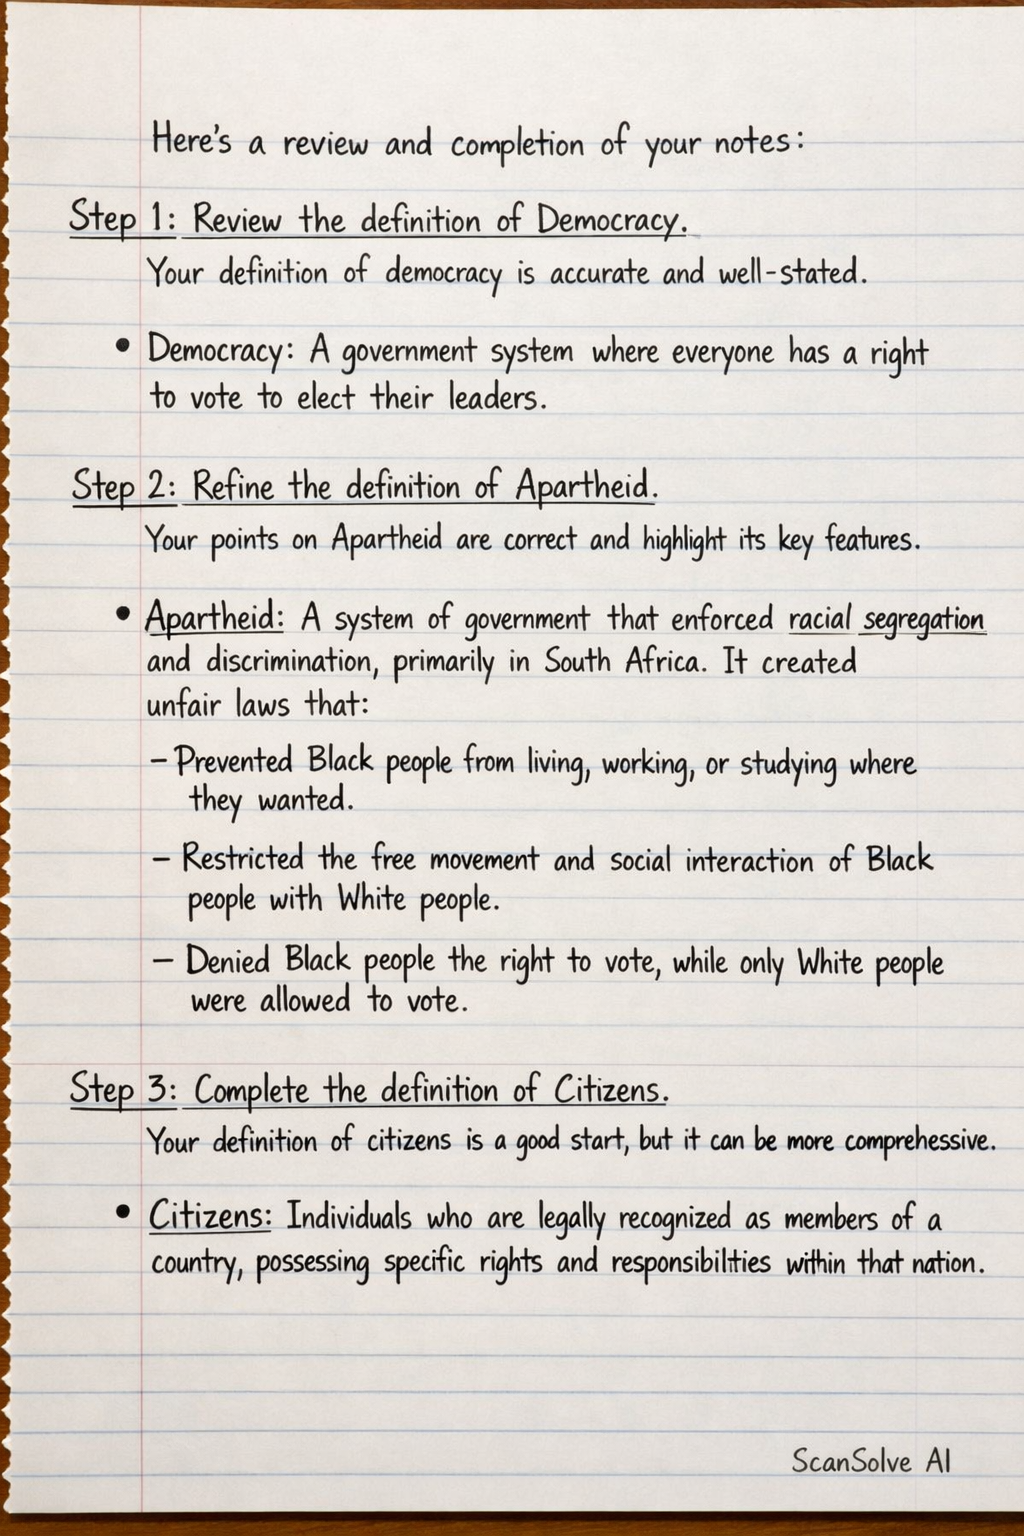 Here's a review and completion of your notes:
Step 1: Review the definition of Democracy.
Your definition of democracy is accurate and well-stated.
• Democracy: A government system where everyone has a right
to vote to elect their leaders.
Step 2: Refine the definition of Apartheid.
Your points on Apartheid are correct and highlight its key features.
• Apartheid: A system of government that enforced racial segregation
and discrimination, primarily in South Africa. It created
unfair laws that:
– Prevented Black people from living, working, or studying where
they wanted.
– Restricted the free movement and social interaction of Black
people with White people.
– Denied Black people the right to vote, while only White people
were allowed to vote.
Step 3: Complete the definition of Citizens.
Your definition of citizens is a good start, but it can be more comprehessive.
• Citizens: Individuals who are legally recognized as members of a
country, possessing specific rights and responsibilties within that nation.
ScanSolve AI